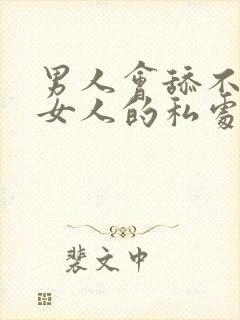 男人會舔不
女人的私處
裴文中